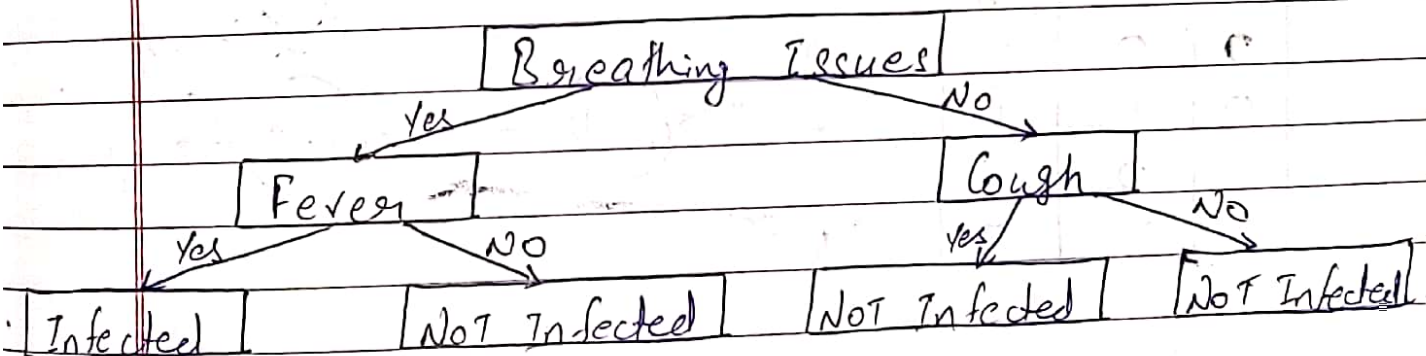 Breathing Issues
Yes NO
Fever Cough
Yes NO Yes NO
Infected NOT Infected NOT Infected NOT Infected